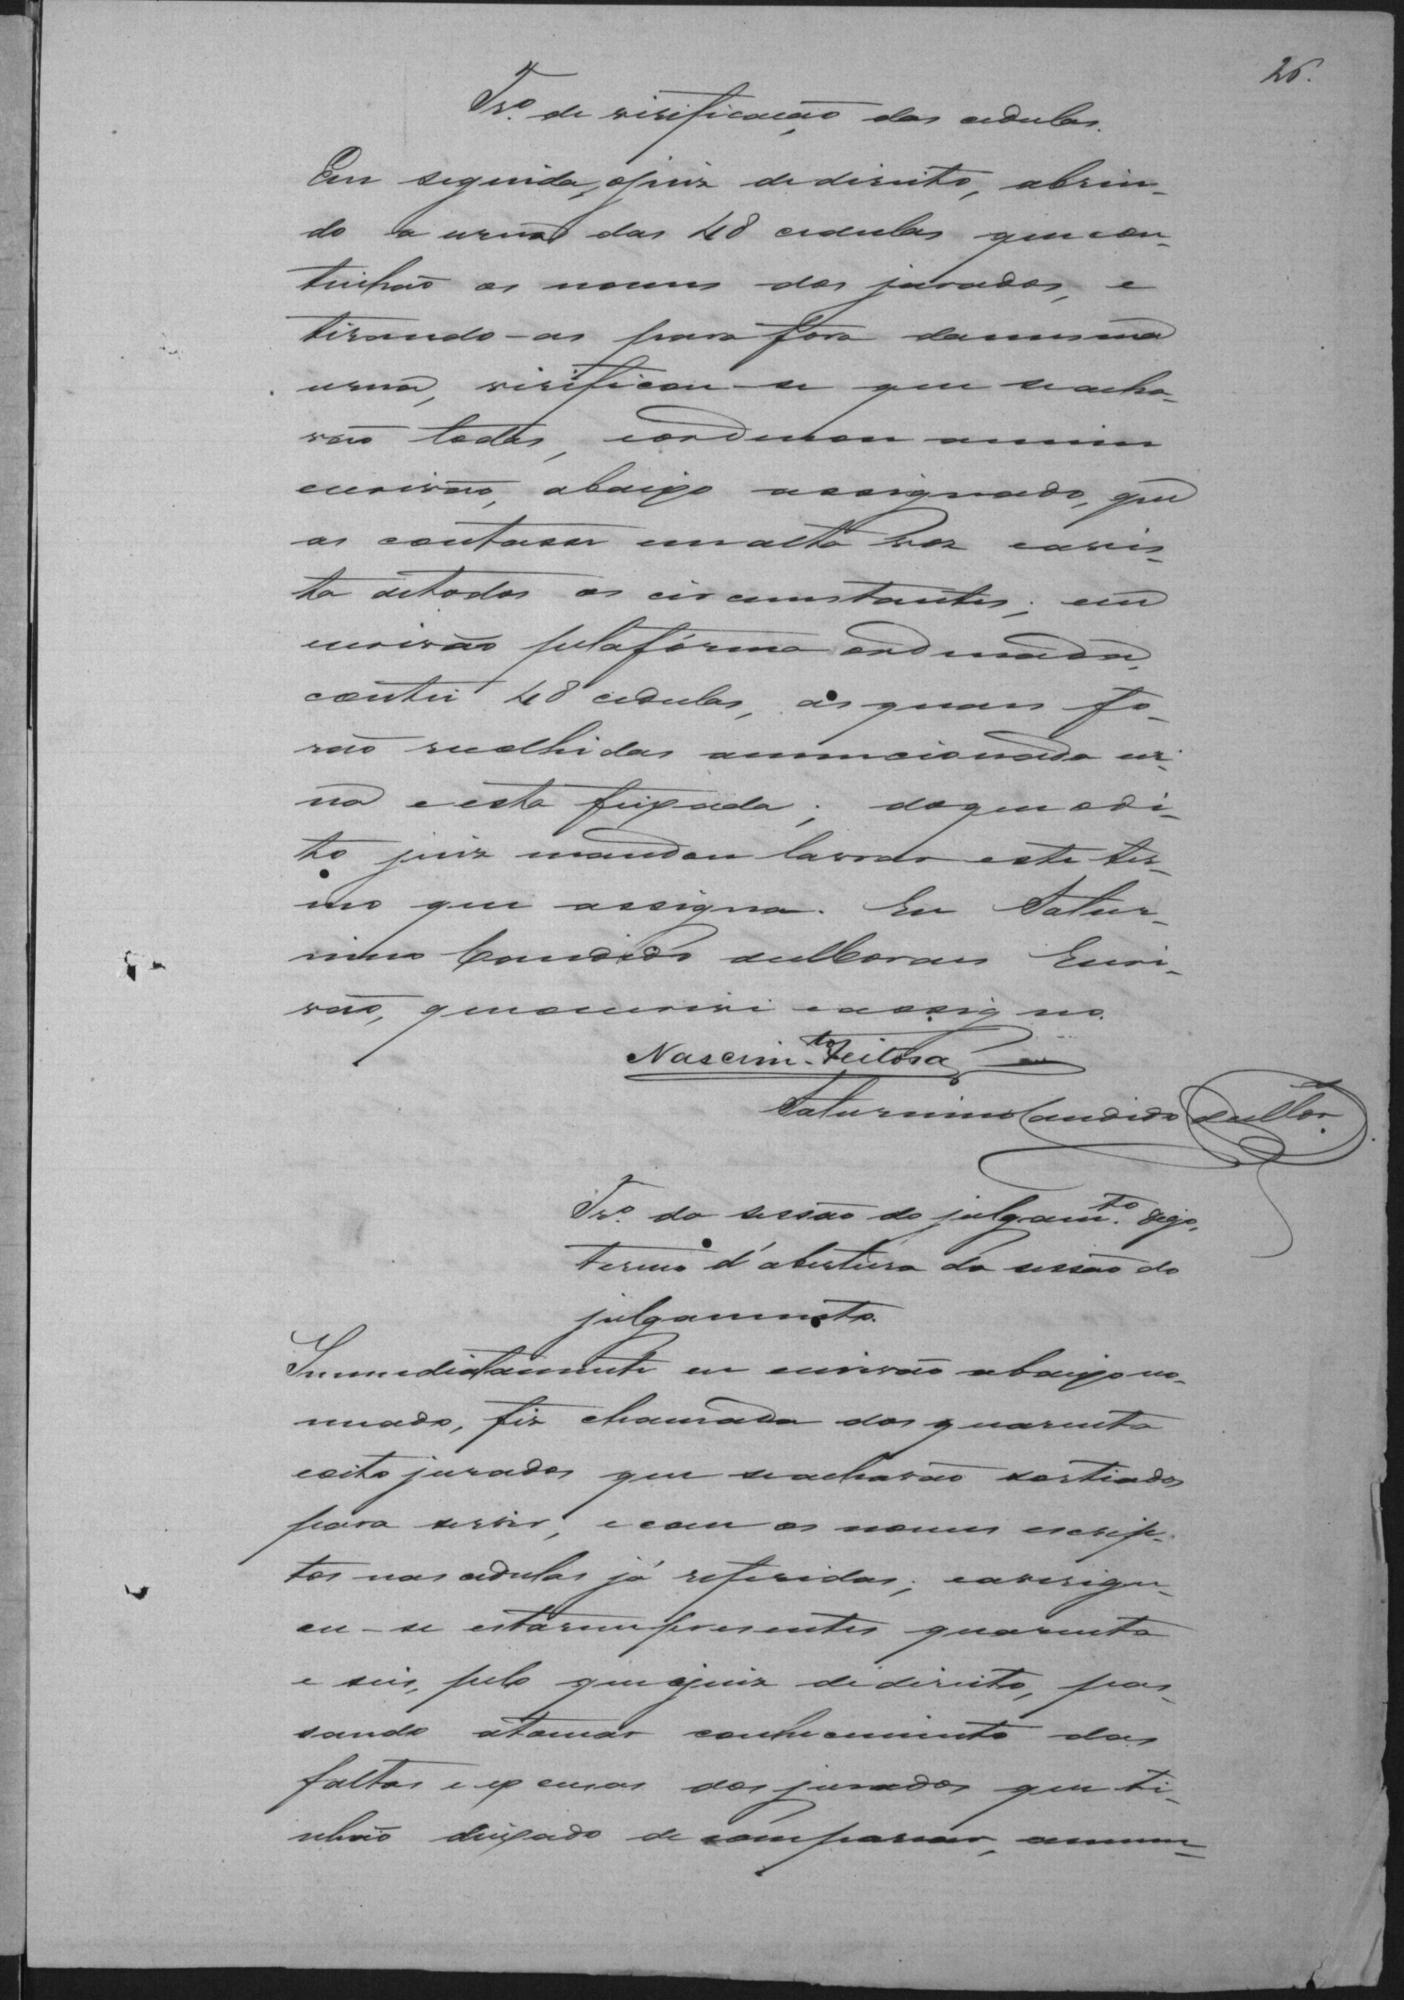 26.
Tr.º de virificação das cedulas.
Em seguida, o juiz de direito, abrin-
do a urna das 48 cedulas que con-
tinhão os nomes dos jurados, e
tirando-as para fora da mesma
urna, virificou-se que se acha-
vão todas, e ordenou a mim
escrivão, abaixo assignado, que
as contasse em alta voz e a vis-
ta de todos os circumstantes; e eu
escrivão pela fórma ordenada,
contei 48 cedulas, as quaes fo-
rão recolhidas a mencionada ur-
na e esta feixada; do que o di-
to juiz mandou lavrar este ter-
mo que assigna. Eu Satur-
nino Candido de Moraes Escri-
vão, que o escrivi e assigno.
Nascim.to Feitosa
Saturnino Candido de Mor.
Tr.º da sessão do julgam.to digo,
termo d'abertura da sessão do
julgamento.
Immediatamente eu escrivão abaixo no-
meado, fiz chamada dos quarenta
e oito jurados que se acharão sortiados
para servir, e com os nomes escrip-
tos nas cedulas já referidas; e averigu-
ou-se estarem presentes quarenta
e seis, pelo que o juiz de direito, pas-
sando a tomar conhecimento das
faltas e excusas dos jurados que ti-
nhão deixado de comparecer, annun-